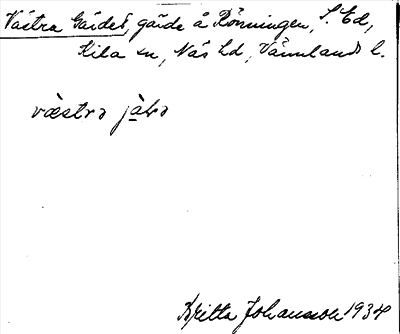 Västra Gärdet, gärde å Rönningen, S. Ed,
Kila sn, Näs hd, Värmlands l.
væstrə jæ̀ɭə
Britta Johansson 1934